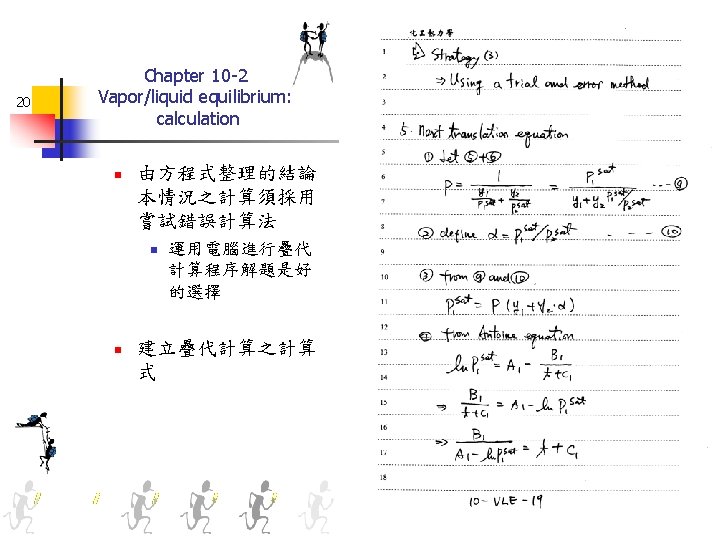 20
Chapter 10-2
Vapor/liquid equilibrium:
calculation
由方程式整理的結論
本情況之計算須採用
嘗試錯誤計算法
運用電腦進行疊代
計算程序解題是好
的選擇
建立疊代計算之計算
式
化工熱力學
1 ⑤ Strategy (3)
2 ⇒ Using a trial and error method
3
4 5. Next translation equation
5 ① Let ⑤+⑥
6 P = 1 / (y₁/P₁sat + y₂/P₂sat) = P₁sat / (y₁ + y₂ P₁sat/P₂sat) --- ⑨
7
8 ② define α = P₁sat/P₂sat --- ⑩
9
10 ③ from ⑨ and ⑩
11 P₁sat = P (y₁ + y₂·α)
12 ④ from Antoine equation
13 ln P₁sat = A₁ - B₁/(t + C₁)
14
15 ⇒ B₁/(t + C₁) = A₁ - ln P₁sat
16
17 ⇒ B₁/(A₁ - ln P₁sat) = t + C₁
18
10-VLE-19